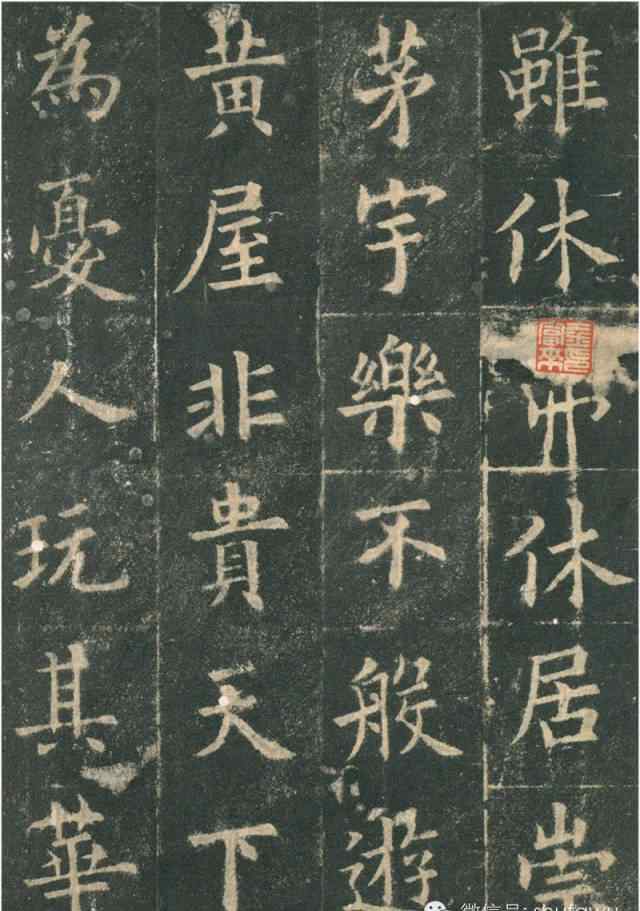 雖休休居崇
茅宇樂不般遊
黃屋非貴天下
為憂人玩其華
微信号: